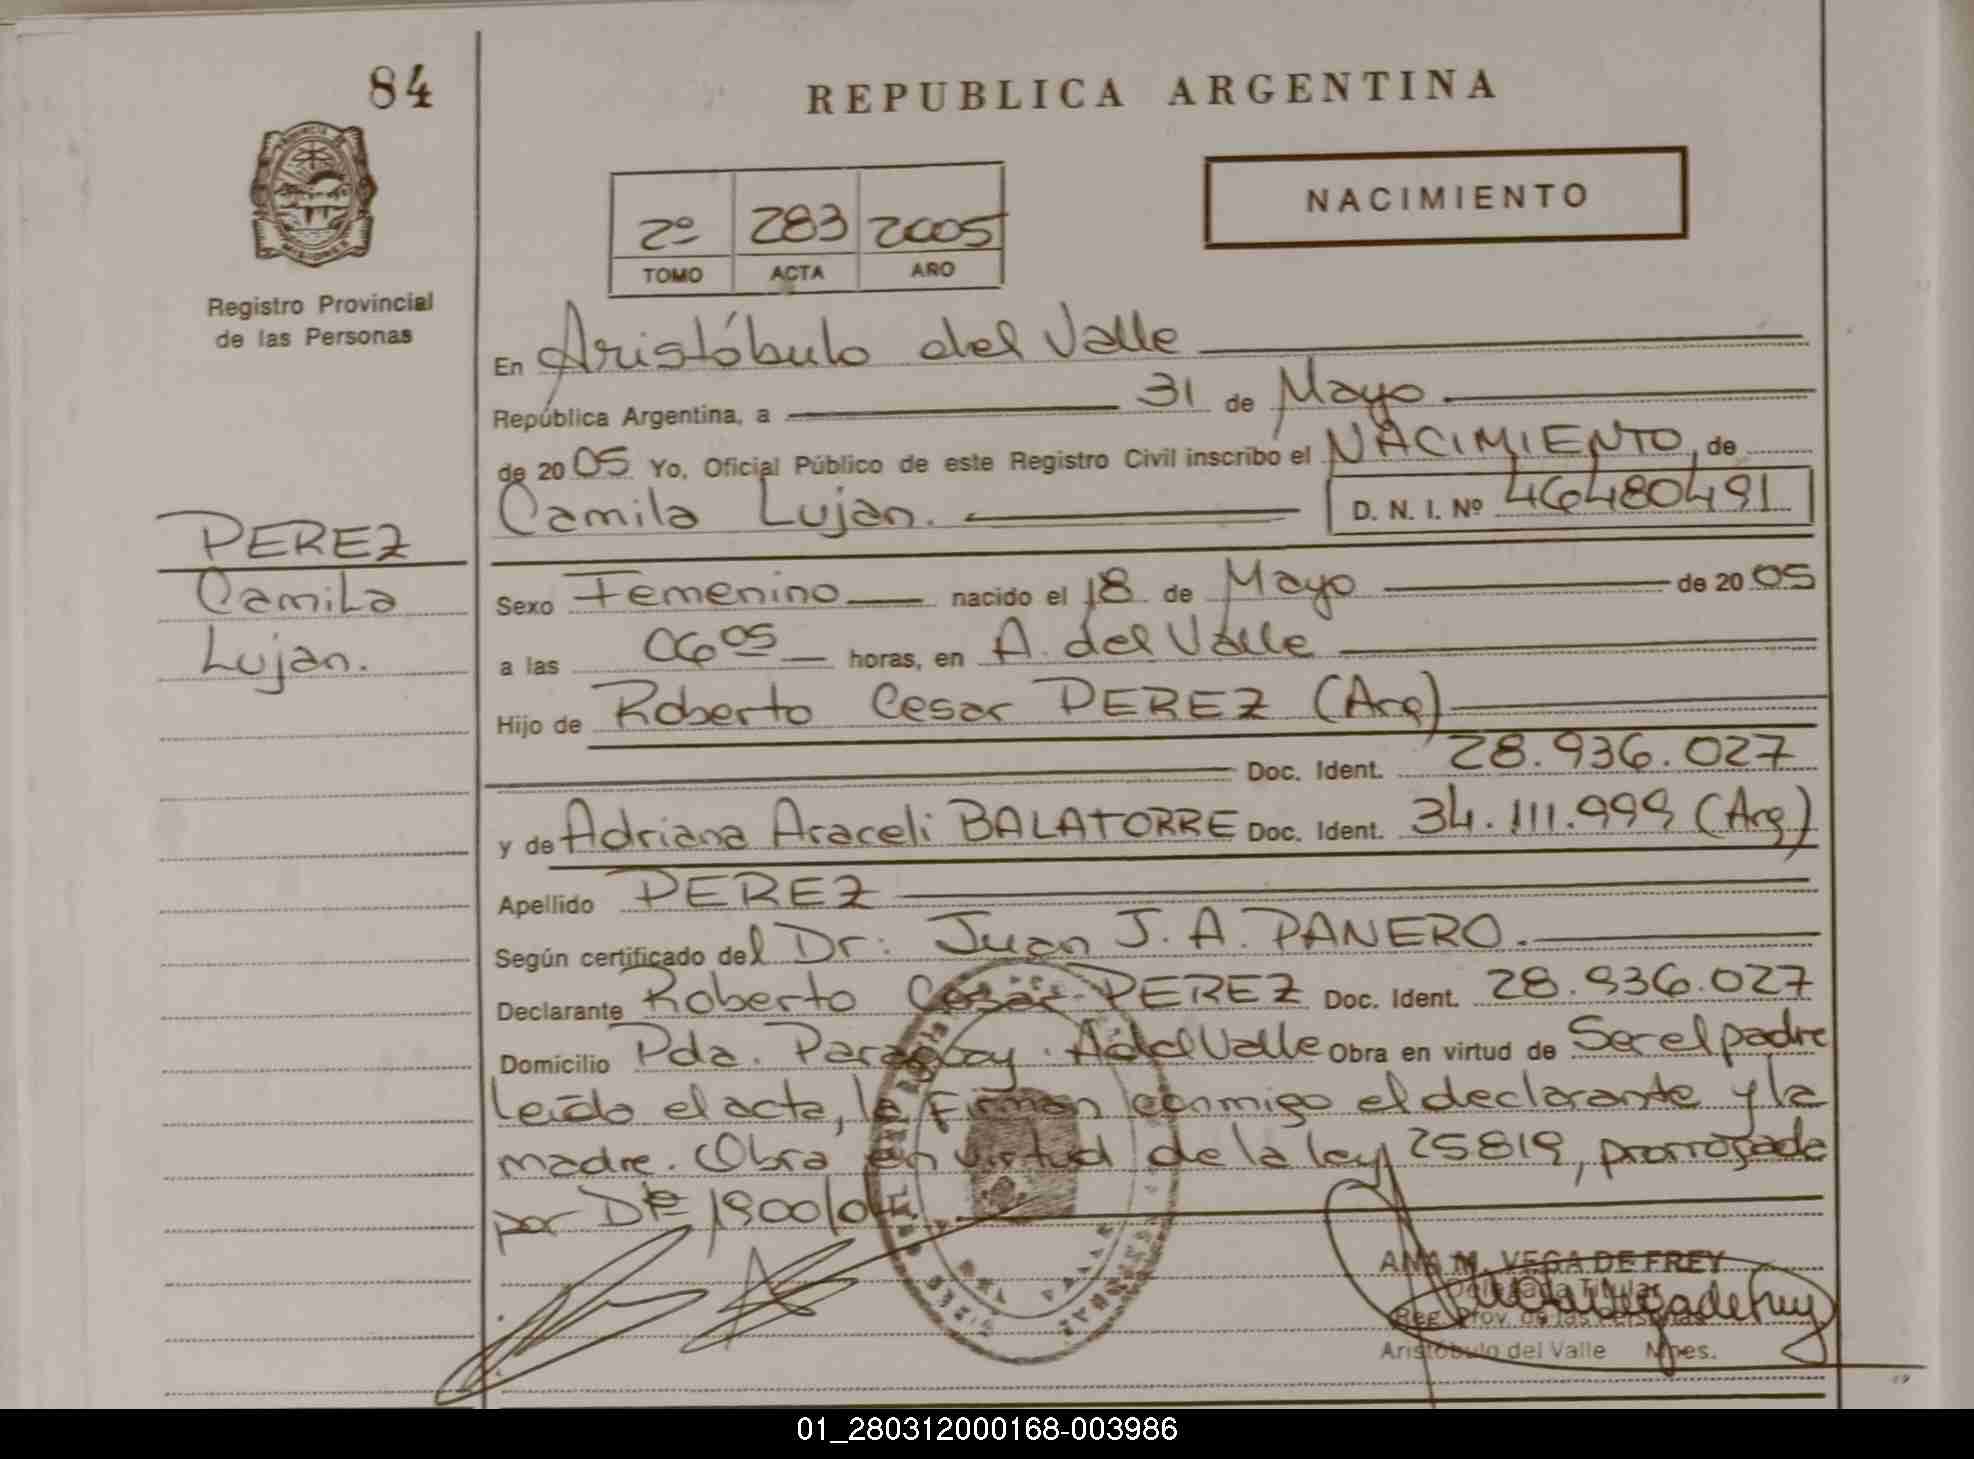 84
REPUBLICA ARGENTINA
NACIMIENTO
2º 283 2005
TOMO ACTA AÑO
Registro Provincial
de las Personas
En Aristóbulo del Valle
República Argentina, a 31 de Mayo
de 20 05 Yo, Oficial Público de este Registro Civil inscribo el NACIMIENTO, de
Camila Lujan. D. N. I. Nº 46480491
PEREZ
Camila
Lujan.
Sexo Femenino nacido el 18 de Mayo de 20 05
a las 06 05 horas, en A. del Valle
Hijo de Roberto Cesar PEREZ (Arg)
Doc. Ident. 28.936.027
y de Adriana Araceli BALATORRE Doc. Ident. 34.111.999 (Arg)
Apellido PEREZ
Según certificado del Dr. Juan J. A. PANERO.
Declarante Roberto Cesar PEREZ Doc. Ident. 28.936.027
Domicilio Pda. Paraguay. A. del Valle Obra en virtud de Ser el padre
Leído el acta, la firman conmigo el declarante y la
madre. Obra en virtud de la ley 25819, prorrogada
por 1900/04
ANA M. VEGA DE FREY
Delegada Titular
Reg. Prov. de las Personas
Aristóbulo del Valle Mnes.
01_280312000168-003986